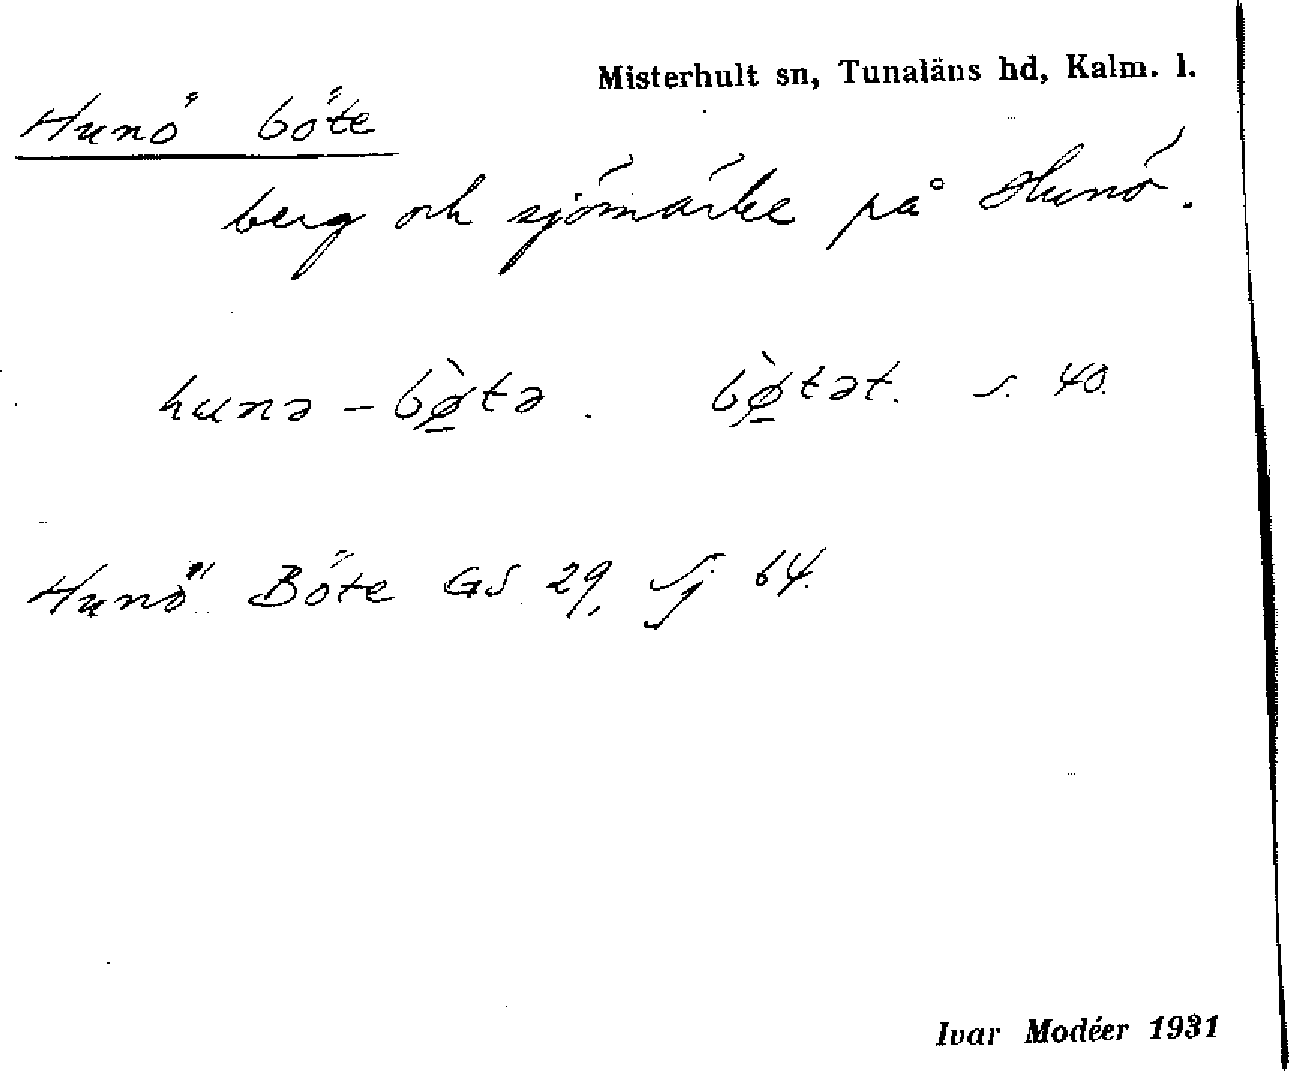 Misterhult sn, Tunaläns hd, Kalm. l.
Hunö böte
berg och sjömärke på Hunö.
hunə-bø̲̀tə. bø̲̀tət. s. 40.
Hunö Böte GS 29, Sj 64.
Ivar Modéer 1931